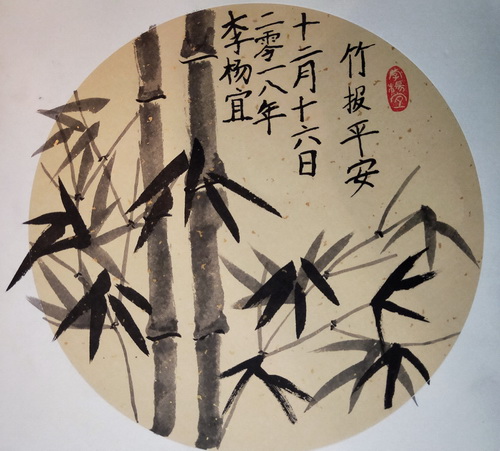 竹报平安
十二月十六日
二零一八年
李杨宜